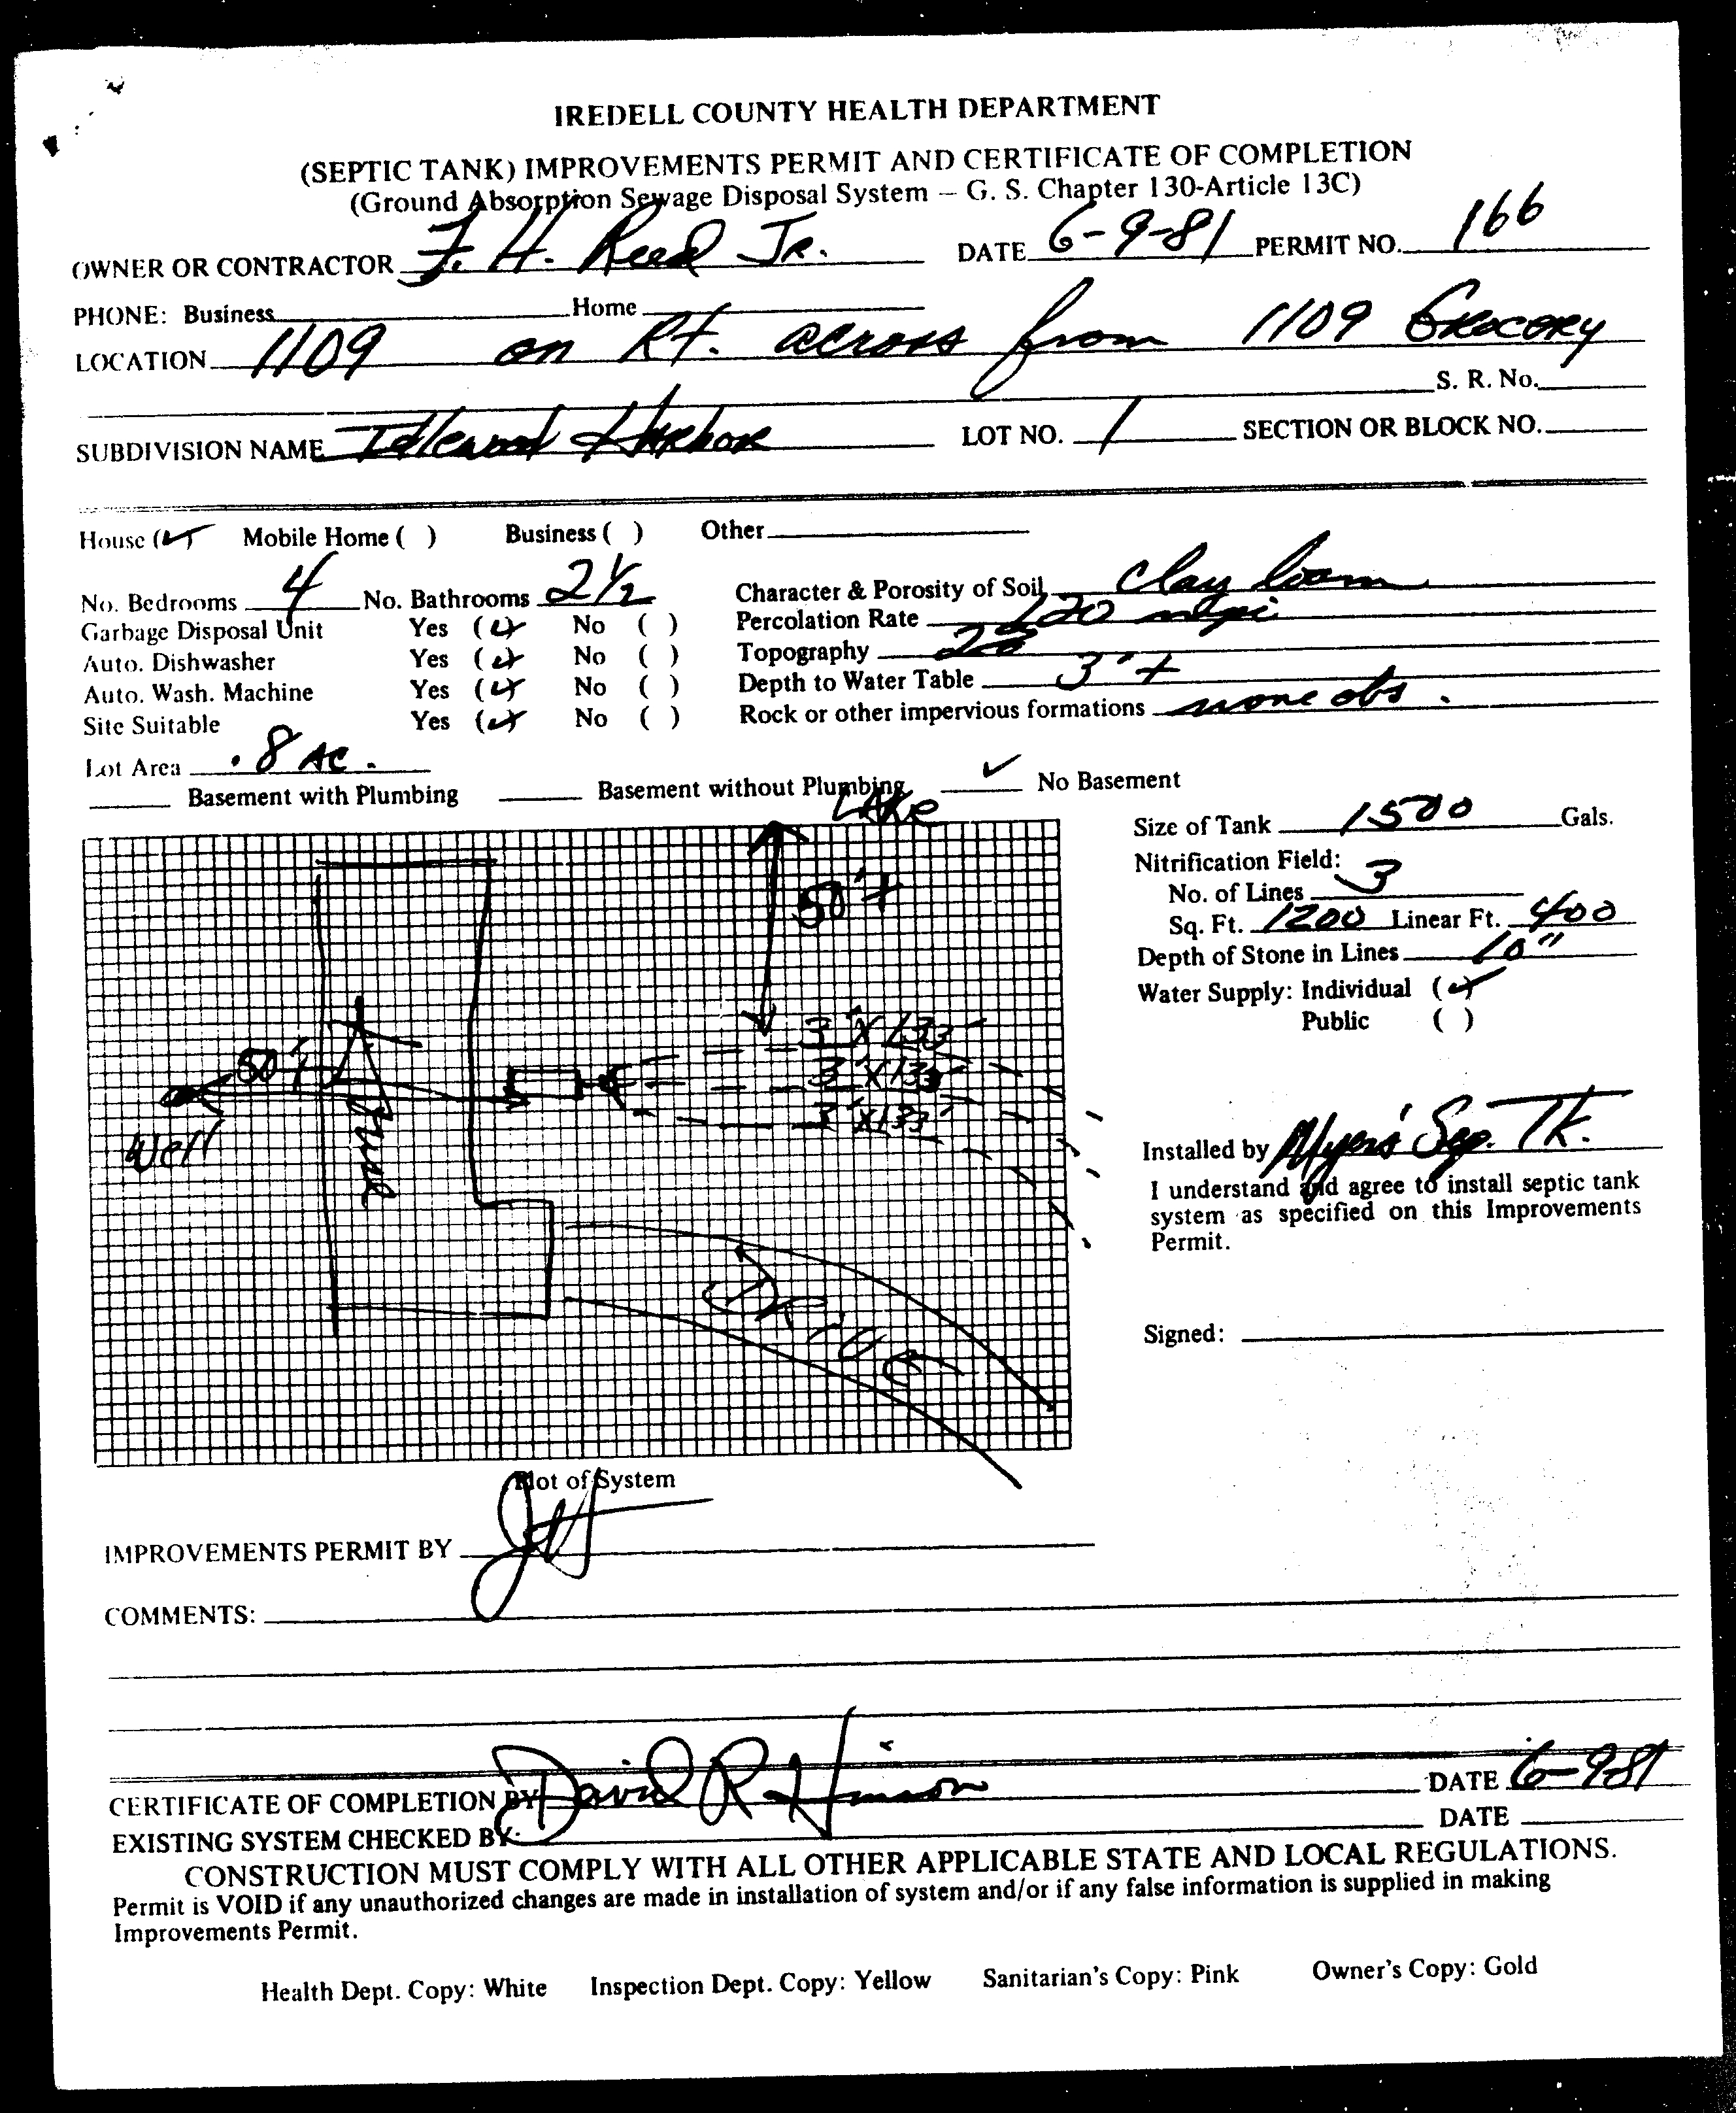 IREDELL COUNTY HEALTH DEPARTMENT
(SEPTIC TANK) IMPROVEMENTS PERMIT AND CERTIFICATE OF COMPLETION
(Ground Absorption Sewage Disposal System – G. S. Chapter 130-Article 13C)
OWNER OR CONTRACTOR F. H. Reed Jr. DATE 6-9-81 PERMIT NO. 166
PHONE: Business Home
LOCATION 1109 on Rt. across from 1109 Grocery
S. R. No.
SUBDIVISION NAME Idlewood Harbor LOT NO. 1 SECTION OR BLOCK NO.
House (✓) Mobile Home ( ) Business ( ) Other
No. Bedrooms 4 No. Bathrooms 2½ Character & Porosity of Soil Clay loam
Garbage Disposal Unit Yes (✓) No ( ) Percolation Rate 120
Auto. Dishwasher Yes (✓) No ( ) Topography
Auto. Wash. Machine Yes (✓) No ( ) Depth to Water Table 3'+
Site Suitable Yes (✓) No ( ) Rock or other impervious formations none obs.
Lot Area .8 AC.
Basement with Plumbing Basement without Plumbing ✓ No Basement
LAKE
Size of Tank 1500 Gals.
Nitrification Field:
No. of Lines 3
Sq. Ft. 1200 Linear Ft. 400
Depth of Stone in Lines 10"
Water Supply: Individual (✓)
Public ( )
50'+
3'X133'
3'X133'
3'X133'
50'+
Well
Drive
Installed by Myers' Sep. Tk.
I understand and agree to install septic tank
system as specified on this Improvements
Permit.
Signed:
Plot of System
IMPROVEMENTS PERMIT BY
COMMENTS:
CERTIFICATE OF COMPLETION BY David R Hinson DATE 6-9-81
EXISTING SYSTEM CHECKED BY: DATE
CONSTRUCTION MUST COMPLY WITH ALL OTHER APPLICABLE STATE AND LOCAL REGULATIONS.
Permit is VOID if any unauthorized changes are made in installation of system and/or if any false information is supplied in making
Improvements Permit.
Health Dept. Copy: White Inspection Dept. Copy: Yellow Sanitarian's Copy: Pink Owner's Copy: Gold